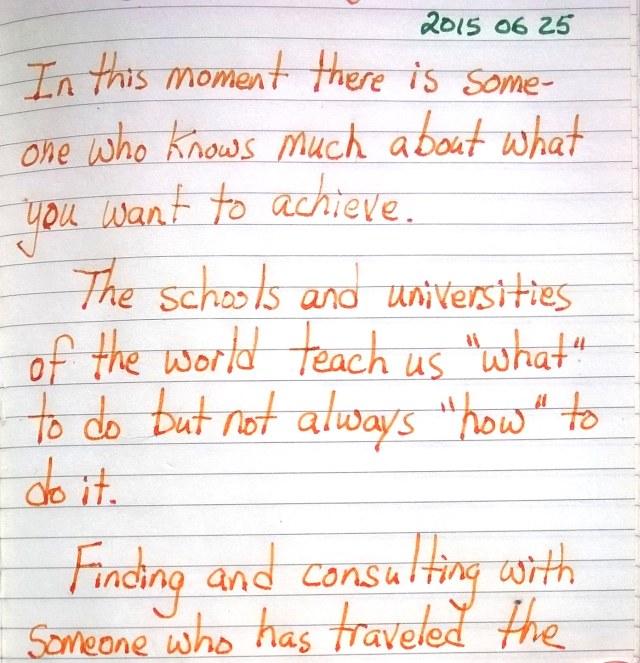 2015 06 25
In this moment there is some-
one who knows much about what
you want to achieve.
The schools and universities
of the world teach us "what"
to do but not always "how" to
do it.
Finding and consulting with
someone who has traveled the